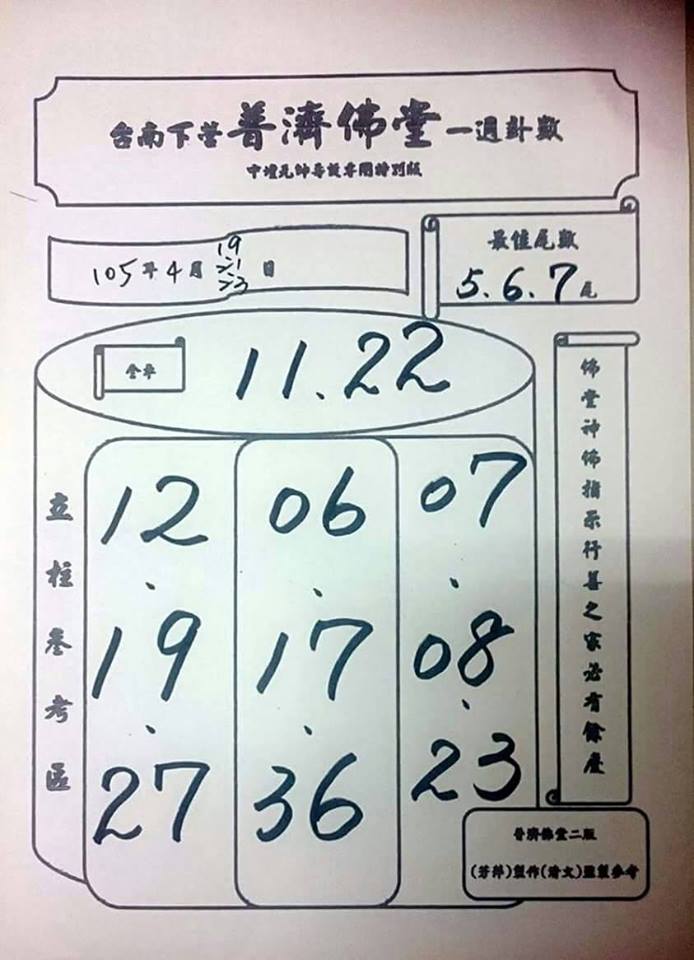 台南下營普濟佛堂一週卦數
中壇元帥每說專開特別版
105年4月19 21 23日
最佳尾數
5.6.7尾
全車
11.22
立柱參考區
12.19.27
06.17.36
07.08.23
佛堂神佛指示行善之家必有餘慶
普濟佛堂二版
(芳萍)製作(清文)監製參考